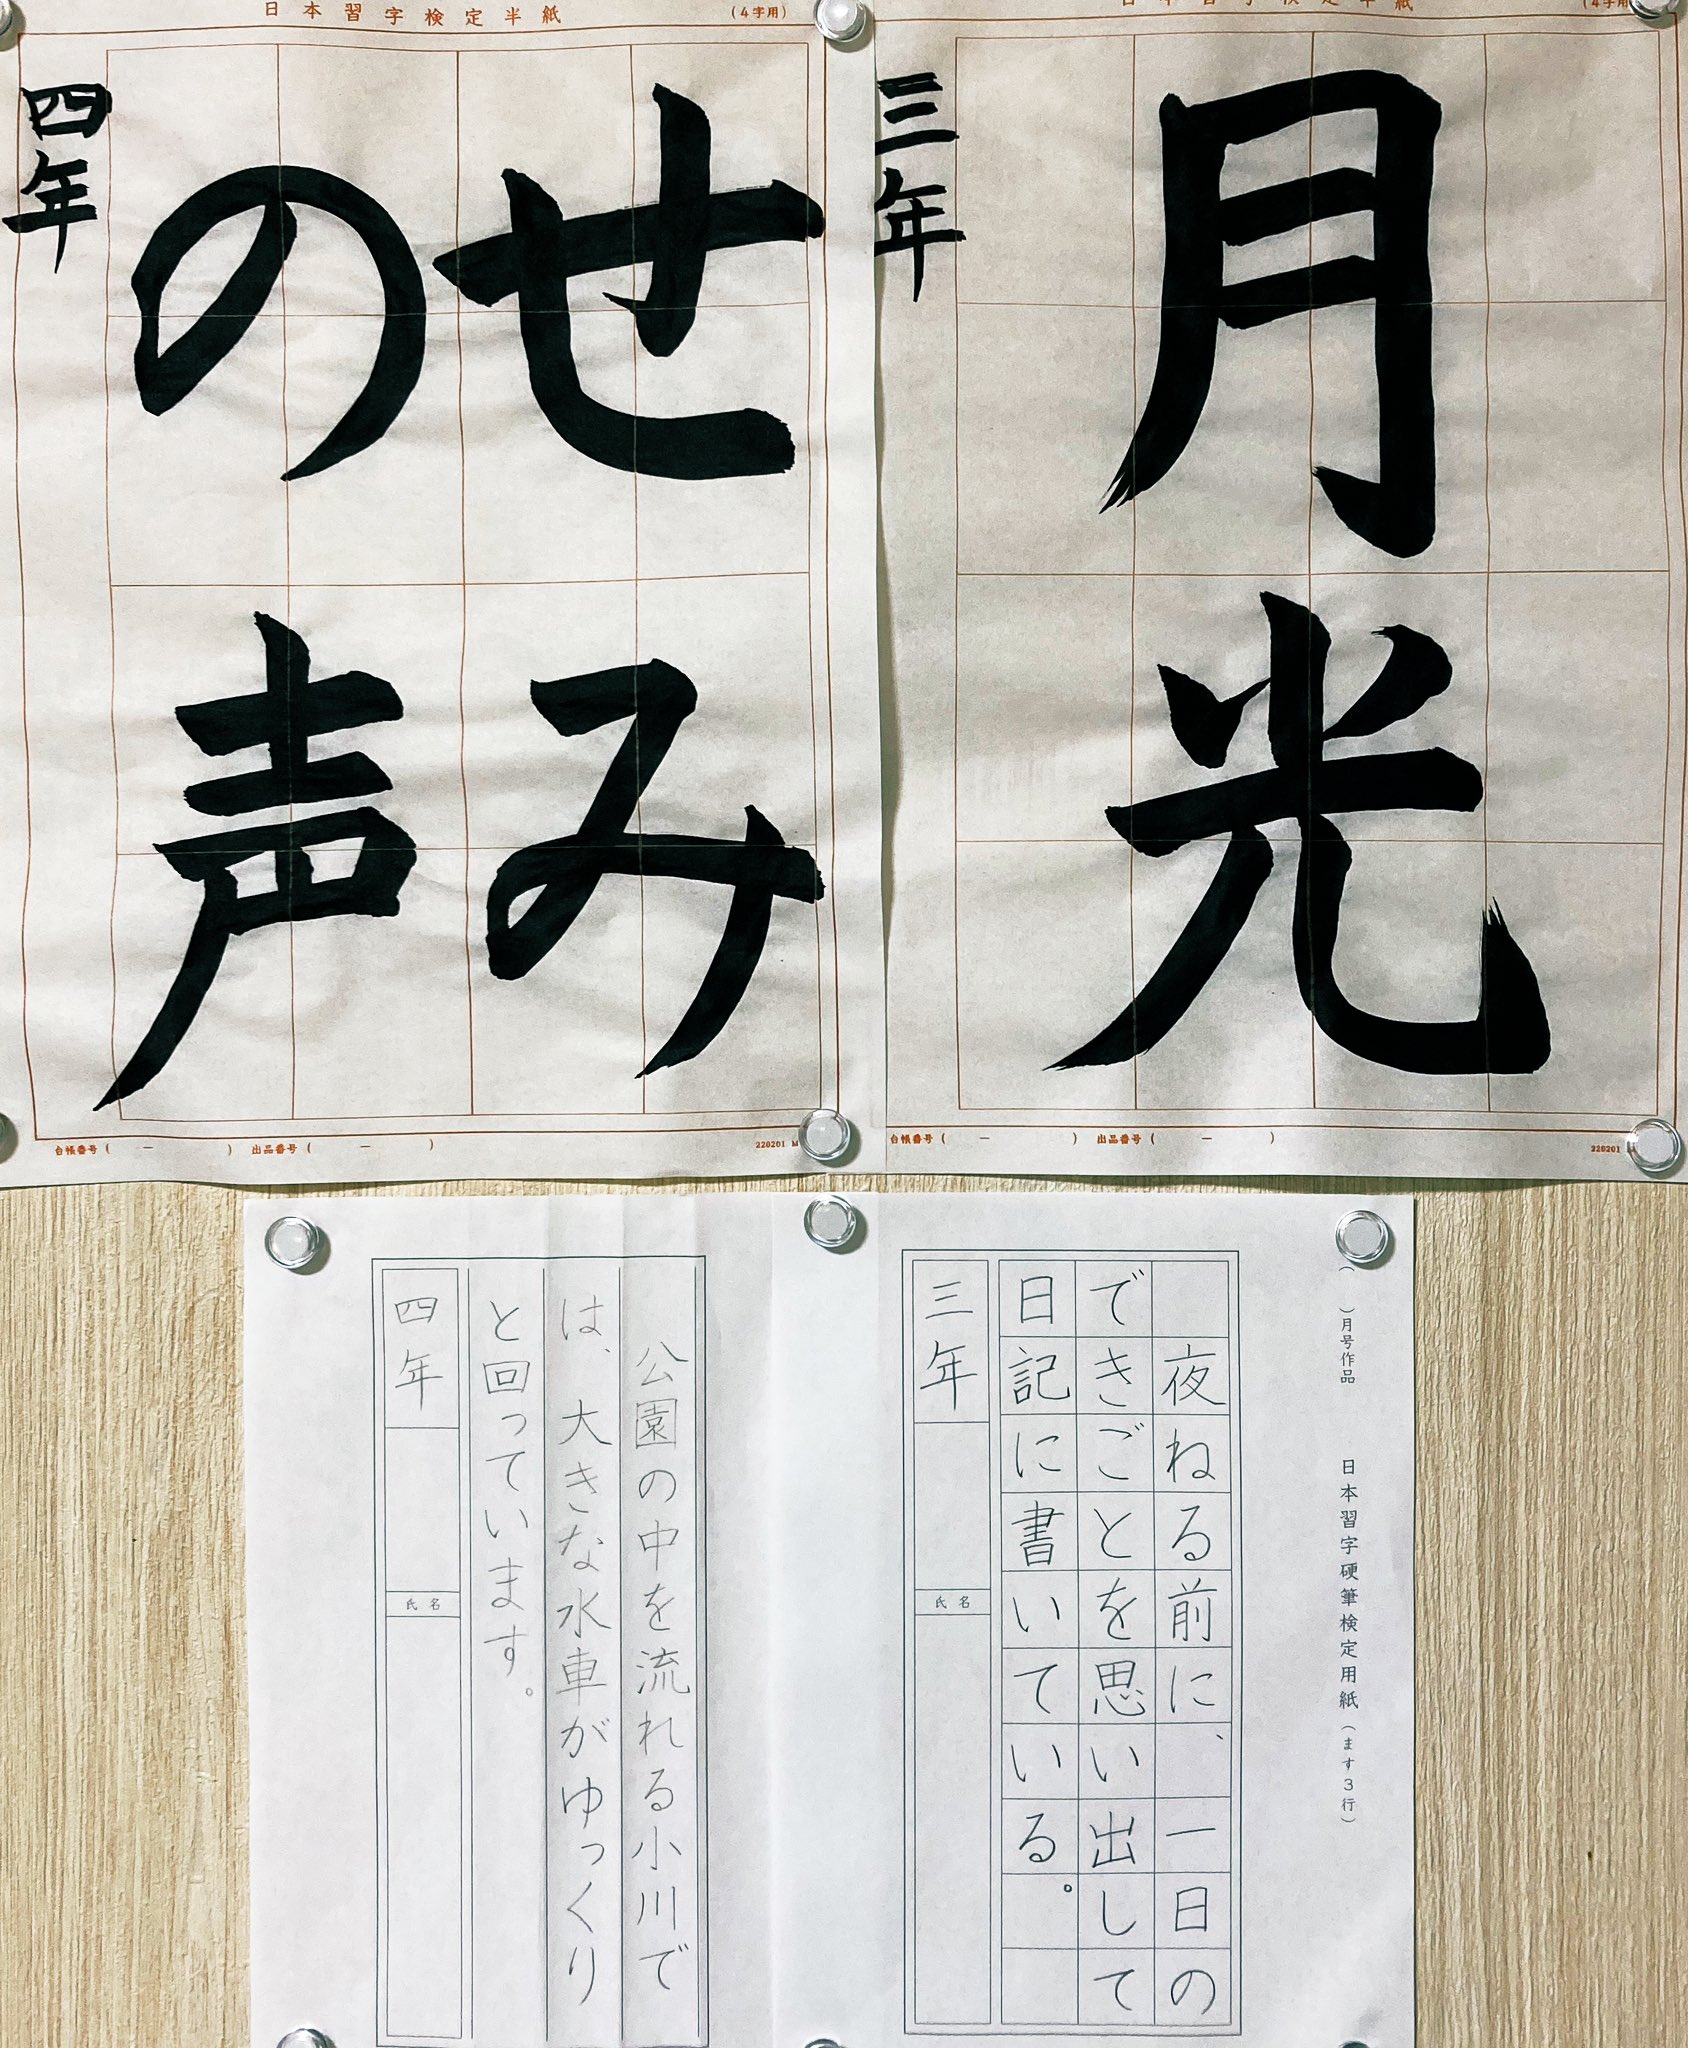 日本習字検定半紙
(4字用)
月光
三年
台帳番号( － ) 出品番号( － )
220201
日本習字検定半紙
(4字用)
せみ
の声
四年
台帳番号( － ) 出品番号( － )
220201 M
( )月号作品 日本習字硬筆検定用紙(ます3行)
夜ねる前に、一日の
できごとを思い出して
日記に書いている。
三年
氏名
公園の中を流れる小川で
は、大きな水車がゆっくり
と回っています。
四年
氏名